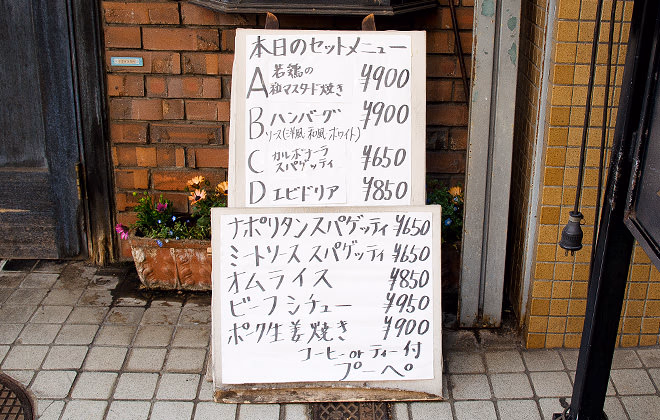 本日のセットメニュー
A 若鶏の
粒マスタード焼き ¥900
B ハンバーグ ¥900
ソース(洋風 和風 ホワイト)
C カルボナーラ
スパゲッティ ¥650
D エビドリア ¥850
ナポリタンスパゲッティ ¥650
ミートソーススパゲッティ ¥650
オムライス ¥850
ビーフシチュー ¥950
ポーク生姜焼き ¥900
コーヒー or ティー付
プーペ